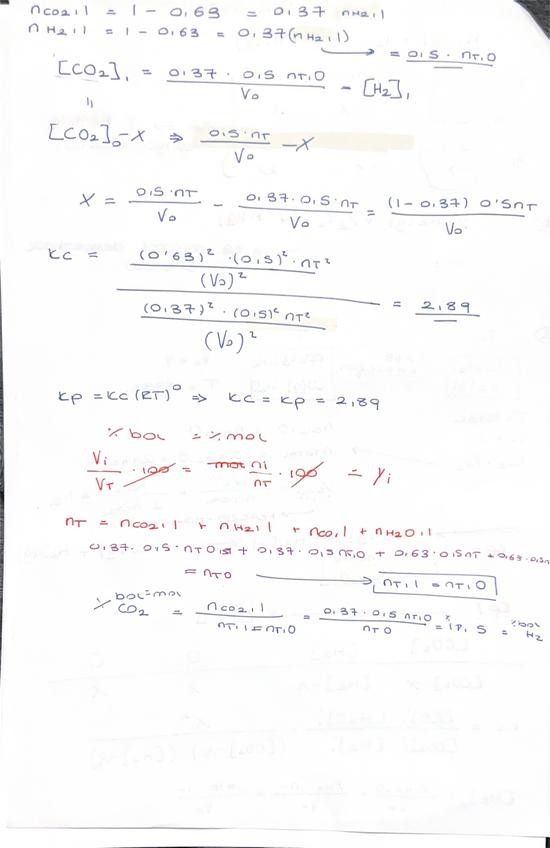 nCO2,1 = 1 - 0,63 = 0,37 nH2,1
nH2,1 = 1 - 0,63 = 0,37(nH2,1)
→ = 0,5 · nT,0
[CO2]1 = 0,37 · 0,5 nT,0 / V0 - [H2]1
॥
[CO2]0 - X ⇒ 0,5 · nT / V0 - X
X = 0,5 · nT / V0 - 0,37 · 0,5 · nT / V0 = (1 - 0,37) 0'5nT / V0
Kc = (0'63)² · (0,5)² · nT² / (V0)² / (0,37)² · (0,5)² nT² / (V0)² = 2,89
Kp = Kc (RT)⁰ ⇒ Kc = Kp = 2,89
% bol = % mol
Vi / VT · 100 = ni / nT · 100 = yi
nT = nCO2,1 + nH2,1 + nCO,1 + nH2O,1
0,37 · 0,5 · nT0 + 0,37 · 0,5 nT,0 + 0,63 · 0,5nT + 0,63 · 0,5n
= nT0 → nT,1 = nT,0
% bol=mol
CO2 = nCO2,1 / nT,1 = nT,0 = 0,37 · 0,5 nT,0 / nT0 = 18,5 % = % bol H2